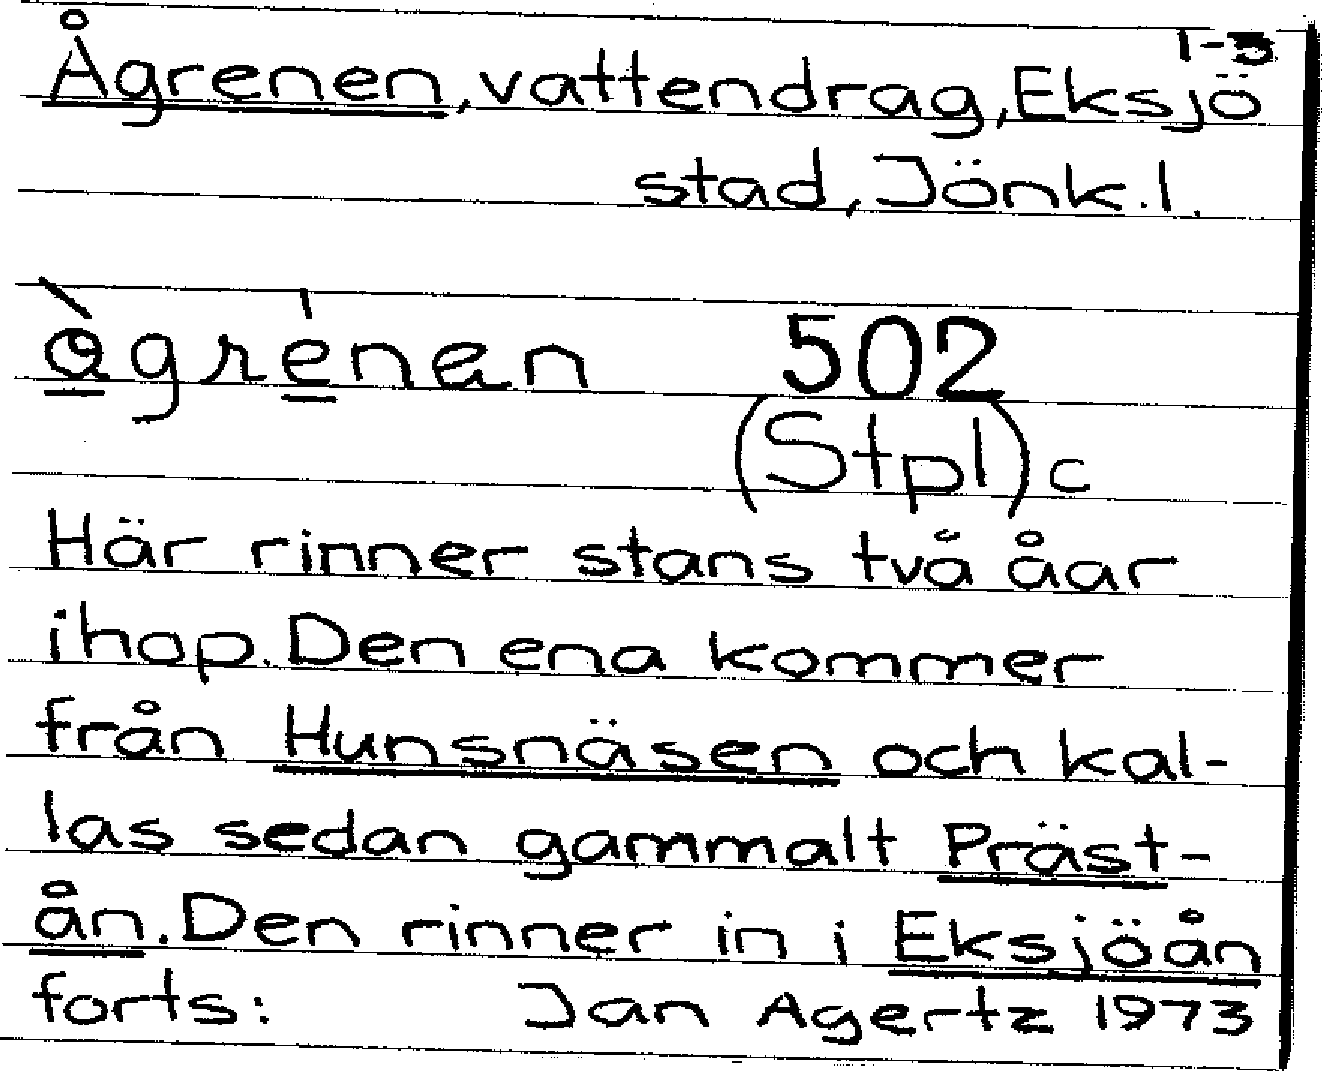 1-3
Ågrenen, vattendrag, Eksjö
stad, Jönk.l.
ə̀grénan 502
(Stpl) c
Här rinner stans två åar
ihop. Den ena kommer
från Hunsnäsen och kal-
las sedan gammalt Präst-
ån. Den rinner in i Eksjöån
forts: Jan Agertz 1973